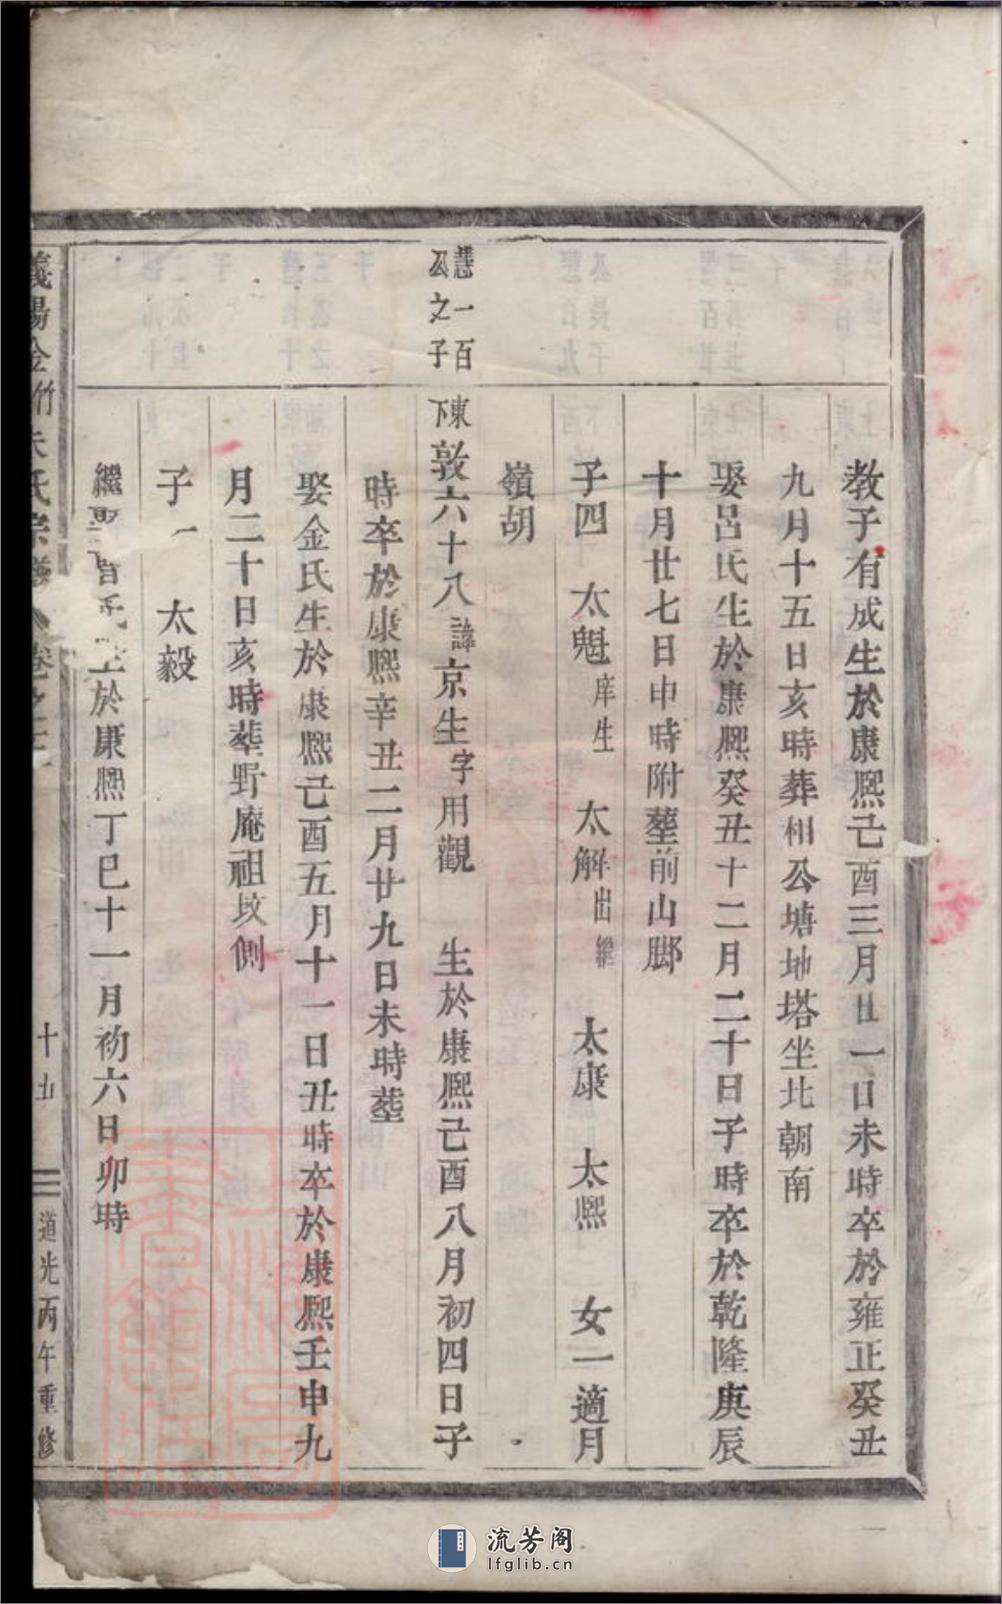 教子有成生於康熙己酉三月廿一日未時卒於雍正癸丑
九月十五日亥時葬相公塘地塔坐北朝南
娶呂氏生於康熙癸丑十二月二十日子時卒於乾隆庚辰
十月廿七日申時附塟前山脚
子四 太魁庠生 太解出繼 太康 太熙 女一適月
嶺胡
慧一百
公之子
東下敦六十八諱京生字用觀 生於康熙己酉八月初四日子
時卒於康熙辛丑二月廿九日未時塟
娶金氏生於康熙己酉五月十一日丑時卒於康熙壬申九
月二十日亥時塟野庵祖坟側
子一 太毅
繼娶 氏生於康熙丁巳十一月初六日卯時
義陽金竹朱氏宗譜 卷之 十五 道光丙午重修
流芳阁
lfglib.cn